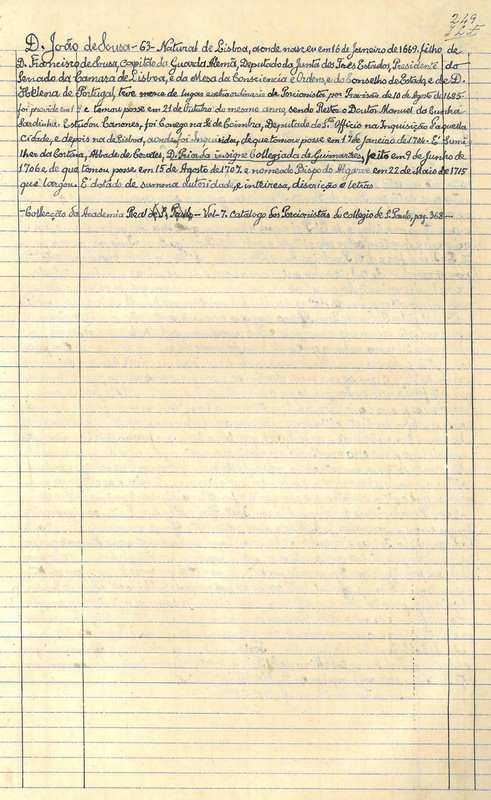 249
D. João de Sousa - 63 - Natural de Lisboa, aonde nasceu em 16 de Janeiro de 1669. filho de
D. Francisco de Sousa, Capitão da Guarda Alemã, Deputado da Junta dos Três Estados, Presidente do
Senado da Camara de Lisboa, e da Mesa da Consciencia e Ordens, e do Conselho de Estado, e de D.
Helena de Portugal, teve merce de lugar extraordinario de Porcionista por Provisão de 10 de Agosto de 1685.
foi provido em e tomou posse em 21 de Outubro do mesmo anno, sendo Reitor o Doutor Manuel da Cunha
Sardinha. Estudou Canones, foi Conego na Sé de Coimbra, Deputado do Sto. Officio na Inquisição daquella
Cidade, e depois na de Lisboa, aonde foi Inquisidor, de que tomou posse em 17 de Janeiro de É Sumi
lher da Cortina, Abbade de D. Prior da insigne Collegiada de Guimarães, feito em 9 de Junho de
1706 e, de que tomou posse em 15 de Agosto de 1707. e nomeado Bispo do Algarve em 22 de Maio de 1715
que largou. É dotado de summa autoridade, e inteiresa, discrição e letras
- Collecção da Academia Real - Vol - 7. Catálogo dos Porcionistas do collegio de S. Paulo, pag. 368 -